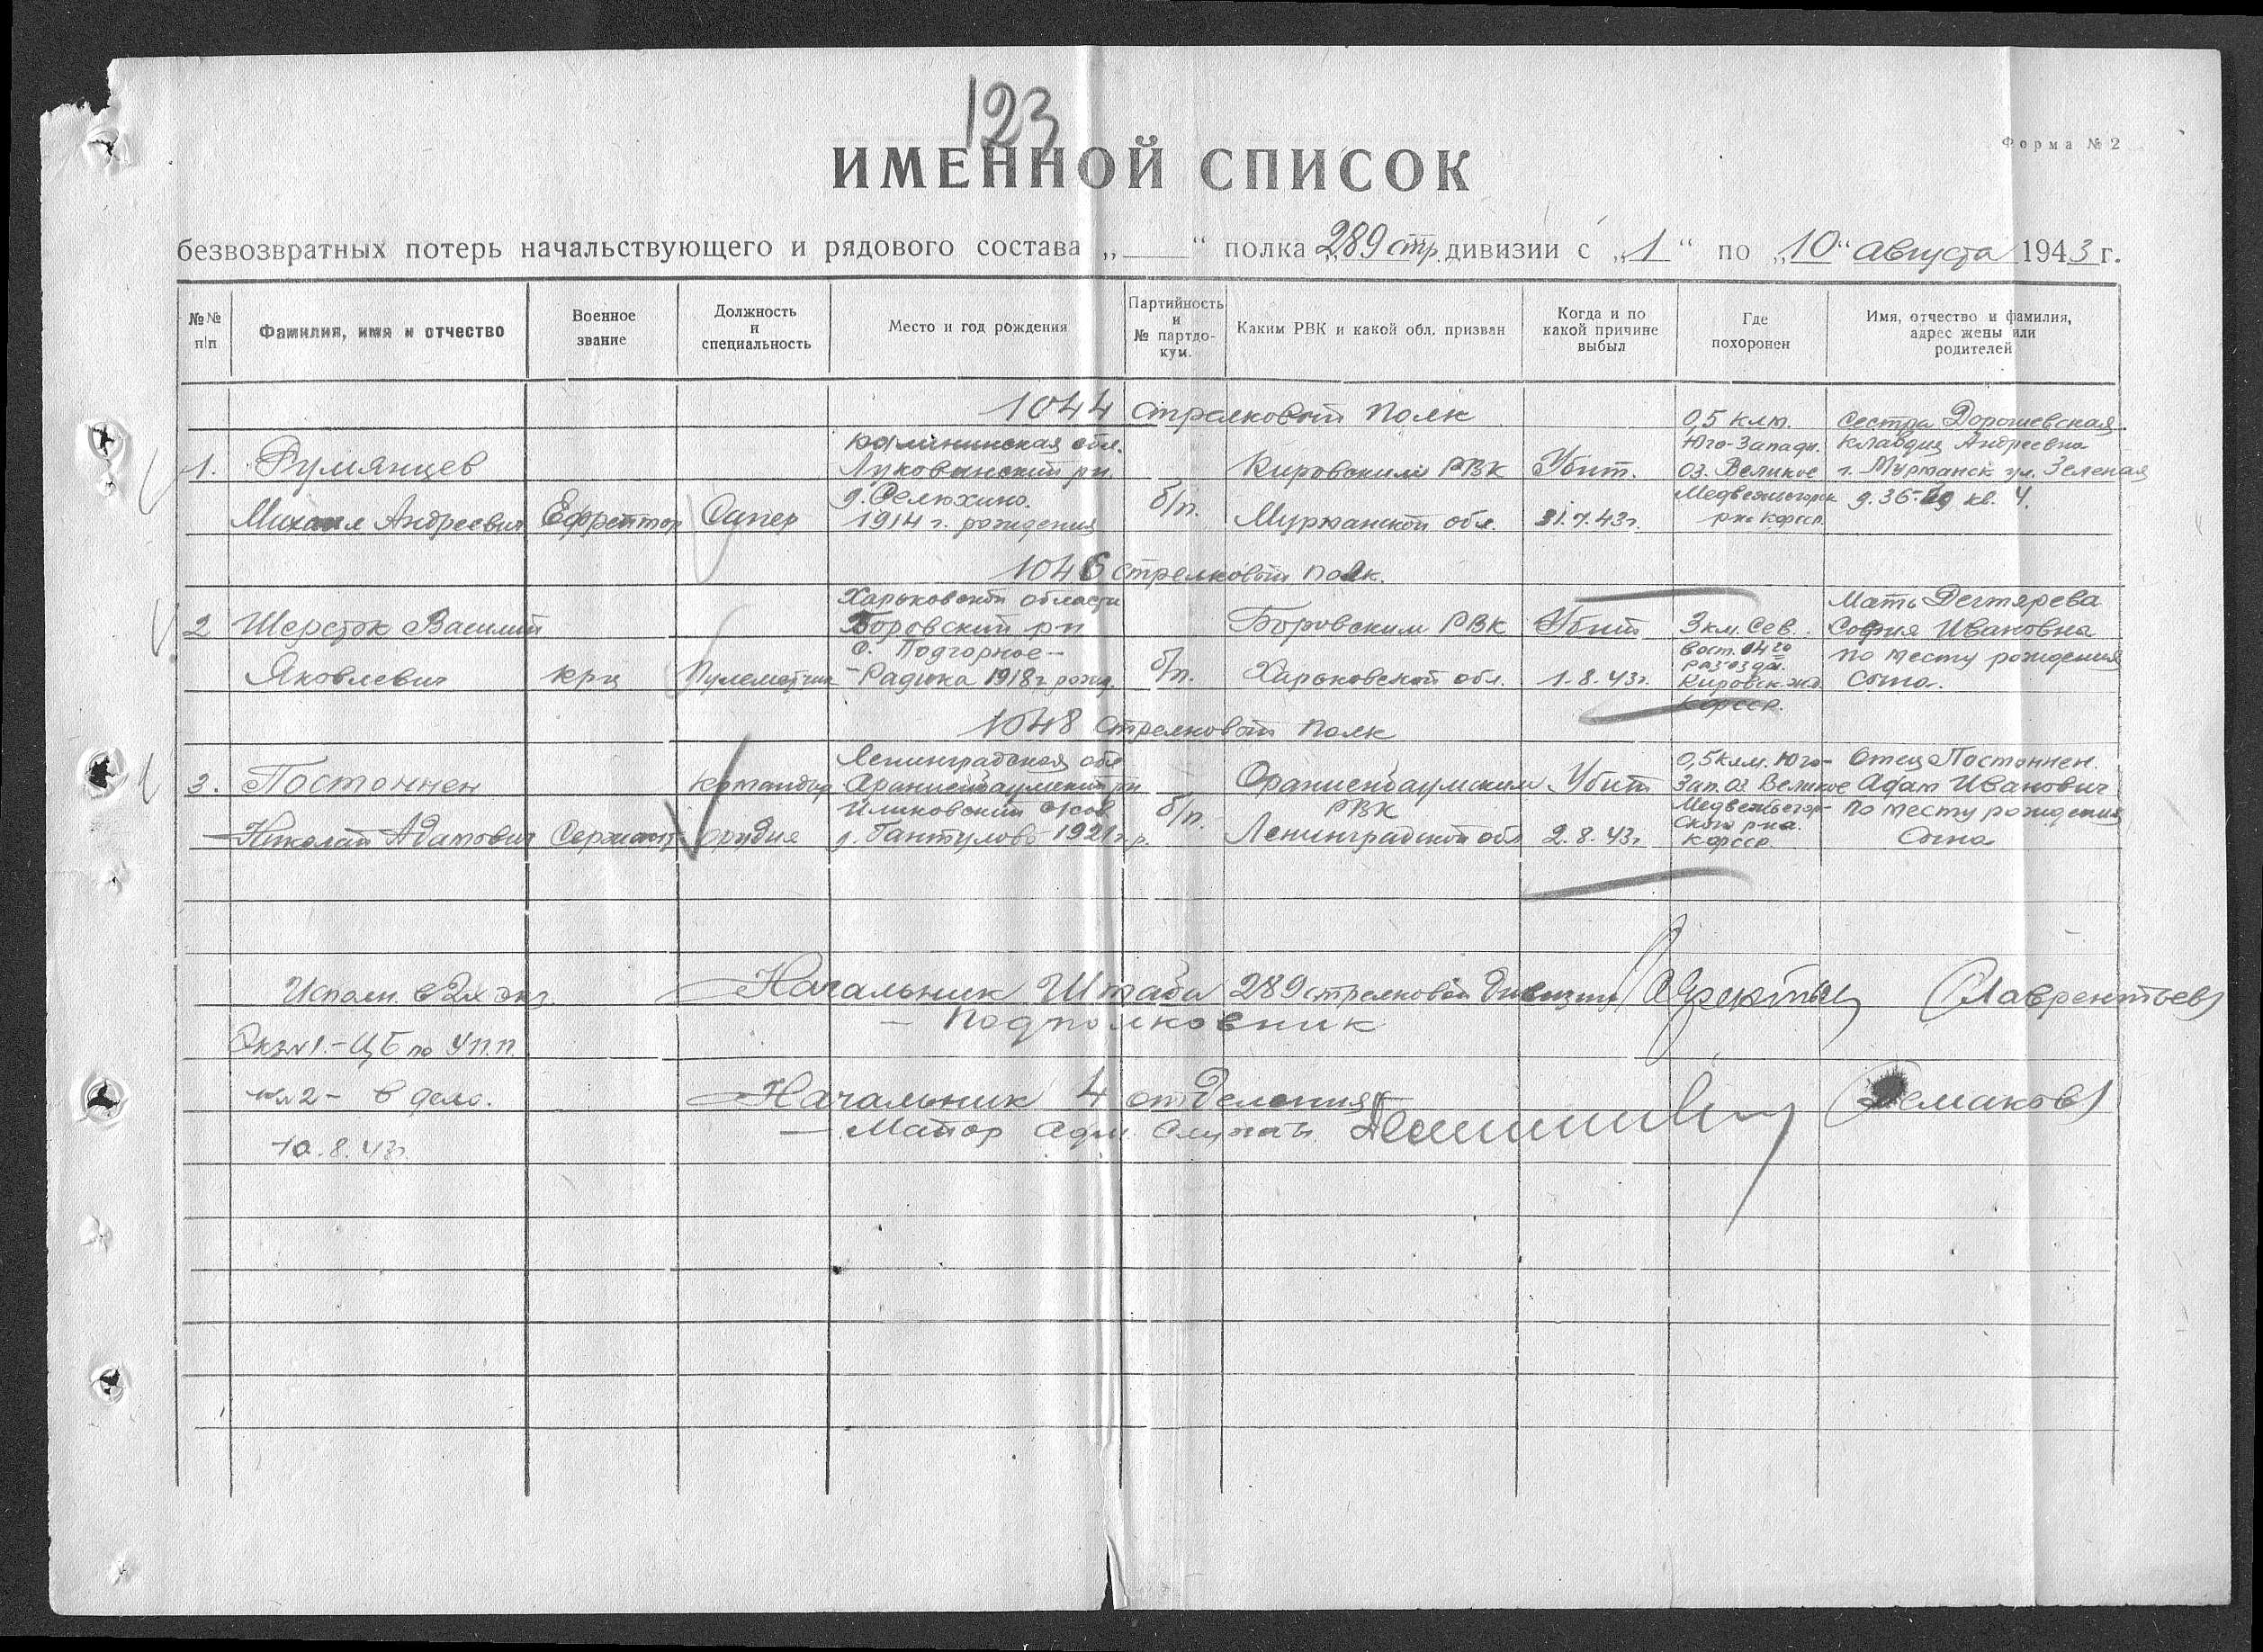 123
Форма № 2
ИМЕННОЙ СПИСОК
безвозвратных потерь начальствующего и рядового состава „ “ полка 289 стр. дивизии с „1“ по „10“ августа 1943 г.
№№ п|п
Фамилия, имя и отчество
Военное звание
Должность и специальность
Место и год рождения
Партийность и № партдокум.
Каким РВК и какой обл. призван
Когда и по какой причине выбыл
Где похоронен
Имя, отчество и фамилия, адрес жены или родителей
1044 стрелковый полк
1. Румянцев
Михаил Андреевич
Ефрейтор
Сапер
Калининская обл.
Луковинский рн.
д. Селюхино.
1914 г. рождения
б/п.
Кировским РВК
Мурманской обл.
Убит.
31.7.43г.
0,5 клм.
Юго-Западн.
оз. Великое
Медвежьегорск
рна кфсср.
Сестра Дорошевская
Клавдия Андреевна
г. Мурманск ул. Зеленая
д. 36 кв. 4.
1046 стрелковый полк.
2 Шерсток Василий
Яковлевич
крц
Пулеметчик
Харьковской области
Боровский рн
с. Подгорное-
-Радька 1918 г. рожд.
б/п.
Боровским РВК
Харьковской обл.
Убит
1.8.43г.
3км. Сев.
Вост. 14го
разъезда.
Кировск. ж.д.
кфсср.
Мать Дегтярева
София Ивановна
по месту рождения
сына.
1048 стрелковый полк
3. Постоннен
Николай Адамович
Сержант
Командир
орудия
Ленинградская обл
Ораниенбаумский рн
Иликовский с/сов
д. Бантулово 1921 г.р.
б/п.
Ораниенбаумским
РВК
Ленинградской обл
Убит
2.8.43г
0,5клм. Юго-
Зап. оз. Великое
Медвежьегор-
ского рна.
кфсср.
Отец Постоннен.
Адам Иванович
по месту рождения
сына
Исполн. в 2х экз.
Экз№1.-ЦБ по У П.П.
№2- в дело.
10.8.43г.
Начальник Штаба 289 стрелковой дивизии (Лаврентьев)
- Подполковник
Начальник 4 отделения (Семаков)
- Майор адм. службы